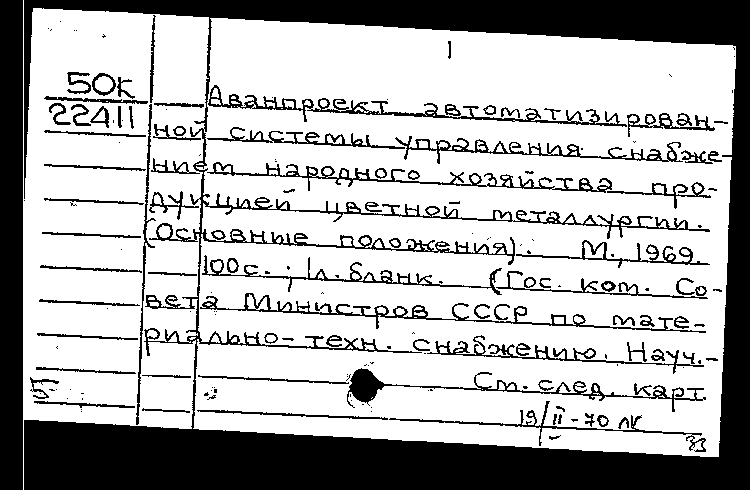 1
50К
22411
Аванпроект автоматизирован-
ной системы управления снабже-
нием народного хозяйства про-
дукцией цветной металлургии.
(Основные положения). М., 1969.
100с.; 1л. бланк. (Гос. ком. Со-
вета Министров СССР по мате-
риально-техн. снабжению. Науч.-
См. след. карт
19/II-70 лк